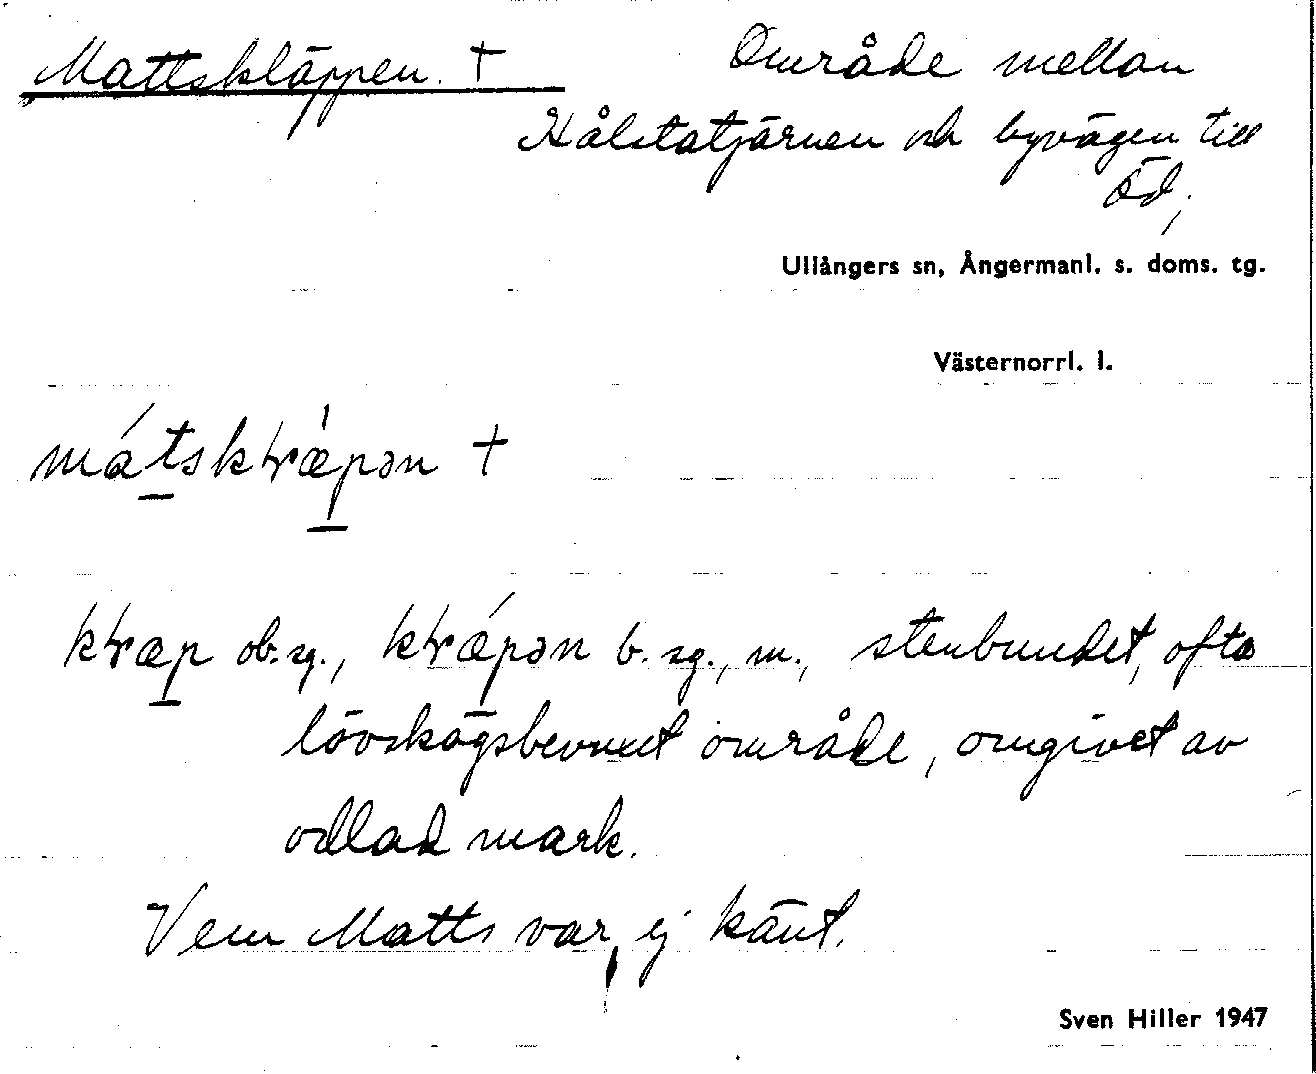 Mattskläppen. † Område mellan
Hålstatjärnen och byvägen till
Öd;
Ullångers sn, Ångermanl. s. doms. tg.
Västernorrl. l.
†
ob. sg., b. sg., m., stenbundet, ofta
lövskogsbevuxet område, omgivet av
odlad mark.
Vem Matts var, ej känt.
Sven Hiller 1947